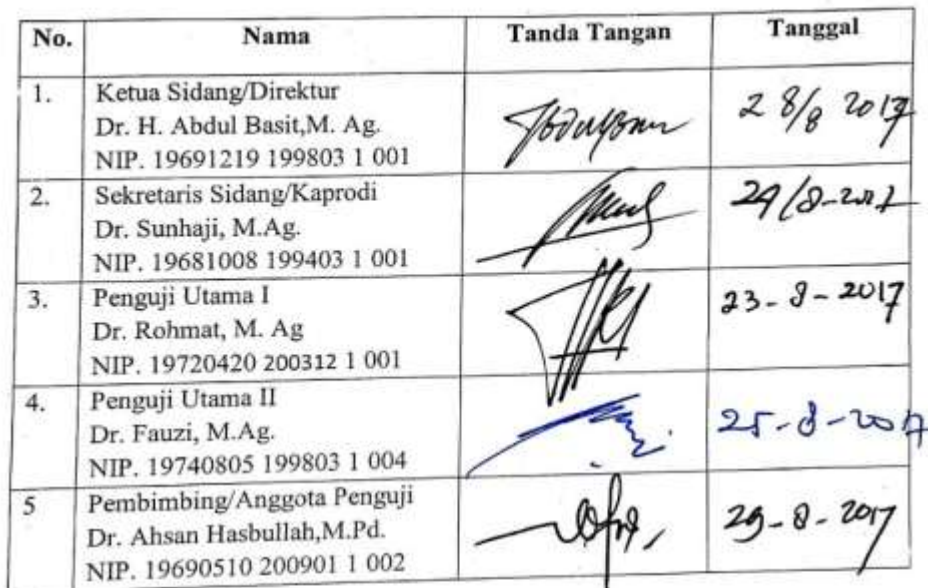 No. Nama Tanda Tangan Tanggal
1. Ketua Sidang/Direktur
Dr. H. Abdul Basit,M. Ag.
NIP. 19691219 199803 1 001
28/8 2017
2. Sekretaris Sidang/Kaprodi
Dr. Sunhaji, M.Ag.
NIP. 19681008 199403 1 001
29/8-2017
3. Penguji Utama I
Dr. Rohmat, M. Ag
NIP. 19720420 200312 1 001
23-8-2017
4. Penguji Utama II
Dr. Fauzi, M.Ag.
NIP. 19740805 199803 1 004
25-8-2017
5 Pembimbing/Anggota Penguji
Dr. Ahsan Hasbullah,M.Pd.
NIP. 19690510 200901 1 002
29-8-2017